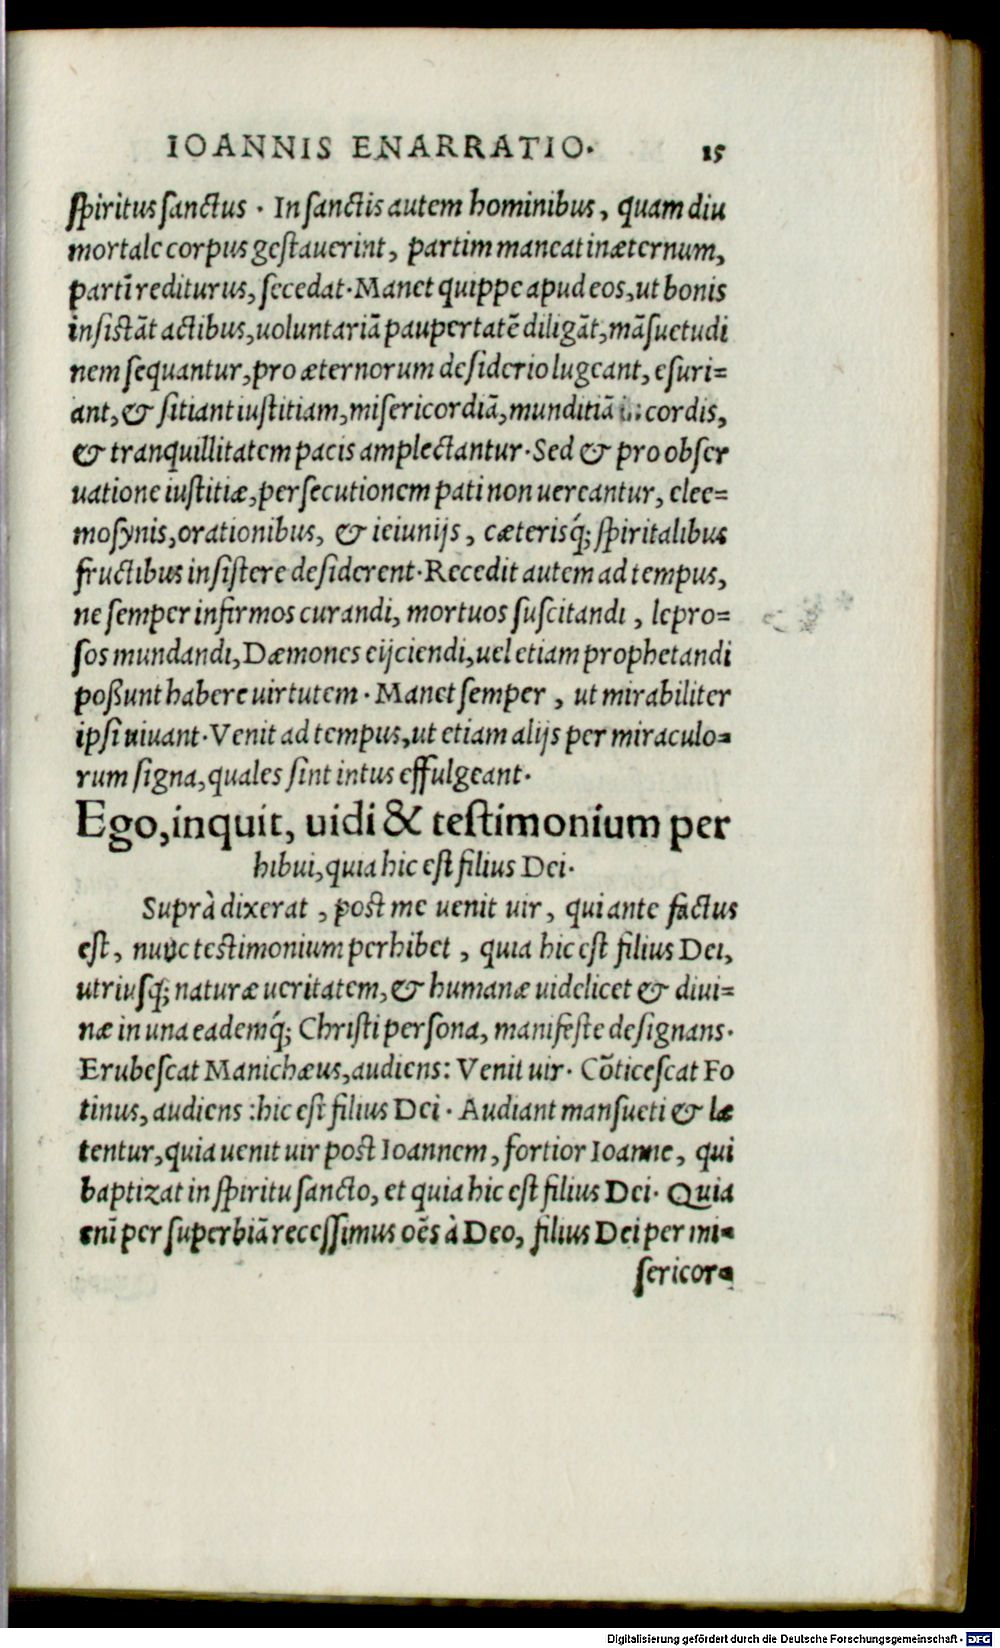 IOANNIS ENARRATIO. 15
spiritus sanctus. In sanctis autem hominibus, quam diu
mortale corpus gestauerint, partim maneat in æternum,
partĩ rediturus, secedat. Manet quippe apud eos, ut bonis
insistãt actibus, uoluntariã paupertatẽ diligãt, mãsuetudi
nem sequantur, pro æternorum desiderio lugeant, esuri=
ant, & sitiant iustitiam, misericordiã, munditiã cordis,
& tranquillitatem pacis amplectantur. Sed & pro obser
uatione iustitiæ, persecutionem pati non uereantur, elee=
mosynis, orationibus, & ieiunijs, cæterisq́; spiritalibus
fructibus insistere desiderent. Recedit autem ad tempus,
ne semper infirmos curandi, mortuos suscitandi, lepro=
sos mundandi, Dæmones eijciendi, uel etiam prophetandi
poßunt habere uirtutem. Manet semper, ut mirabiliter
ipsi uiuant. Venit ad tempus, ut etiam alijs per miraculo=
rum signa, quales sint intus effulgeant.
Ego, inquit, uidi & testimonium per
hibui, quia hic est filius Dei.
Suprà dixerat, post me uenit uir, qui ante factus
est, nunc testimonium perhibet, quia hic est filius Dei,
utriusq; naturæ ueritatem, & humanæ uidelicet & diui=
næ in una eademq́; Christi persona, manifeste designans.
Erubescat Manichæus, audiens: Venit uir. Cõticescat Fo
tinus, audiens: hic est filius Dei. Audiant mansueti & læ
tentur, quia uenit uir post Ioannem, fortior Ioanne, qui
baptizat in spiritu sancto, et quia hic est filius Dei. Quia
enĩ per superbiã recessimus oẽs à Deo, filius Dei per mi=
sericor=
Digitalisierung gefördert durch die Deutsche Forschungsgemeinschaft - DFG